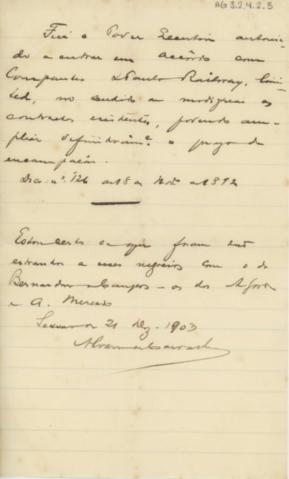 AG 3.2.4.2.5
Foi o Poder Executivo autori-
sado a entrar em accôrdo com
Companhia S Paulo Railway, Limi-
ted, no sentido de modificar os
contractos existentes, podendo am-
pliar definitivamte o prazo de
encampação.
Dec. nº 126 de 18 de Nov. de 1892
Estou certo de que foram
estranhos a esses negocios como o de
Bernardino de Campos — os drs A.
e A. Mercado
21 Dez. 1903